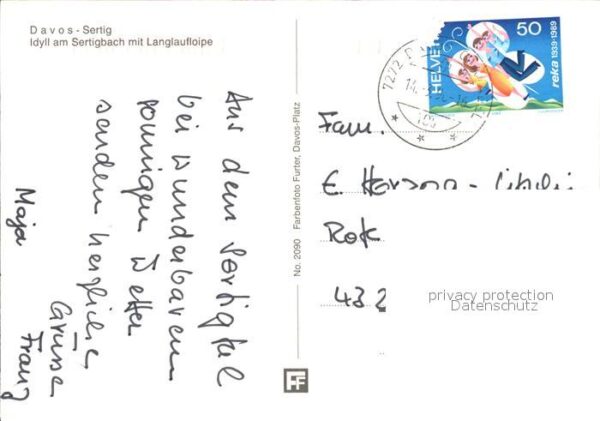 Davos - Sertig
Idyll am Sertigbach mit Langlaufloipe
Aus dem Sertigtal
bei wunderbarem
sonnigen Wetter
senden herzliche
Grüsse
Maja Franz
No. 2090 Farbenfoto Furter, Davos-Platz
FF
7272 D
14.
HELVE
50
reka 1939-1989
Fam.
E. 
Rok
432
privacy protection
Datenschutz